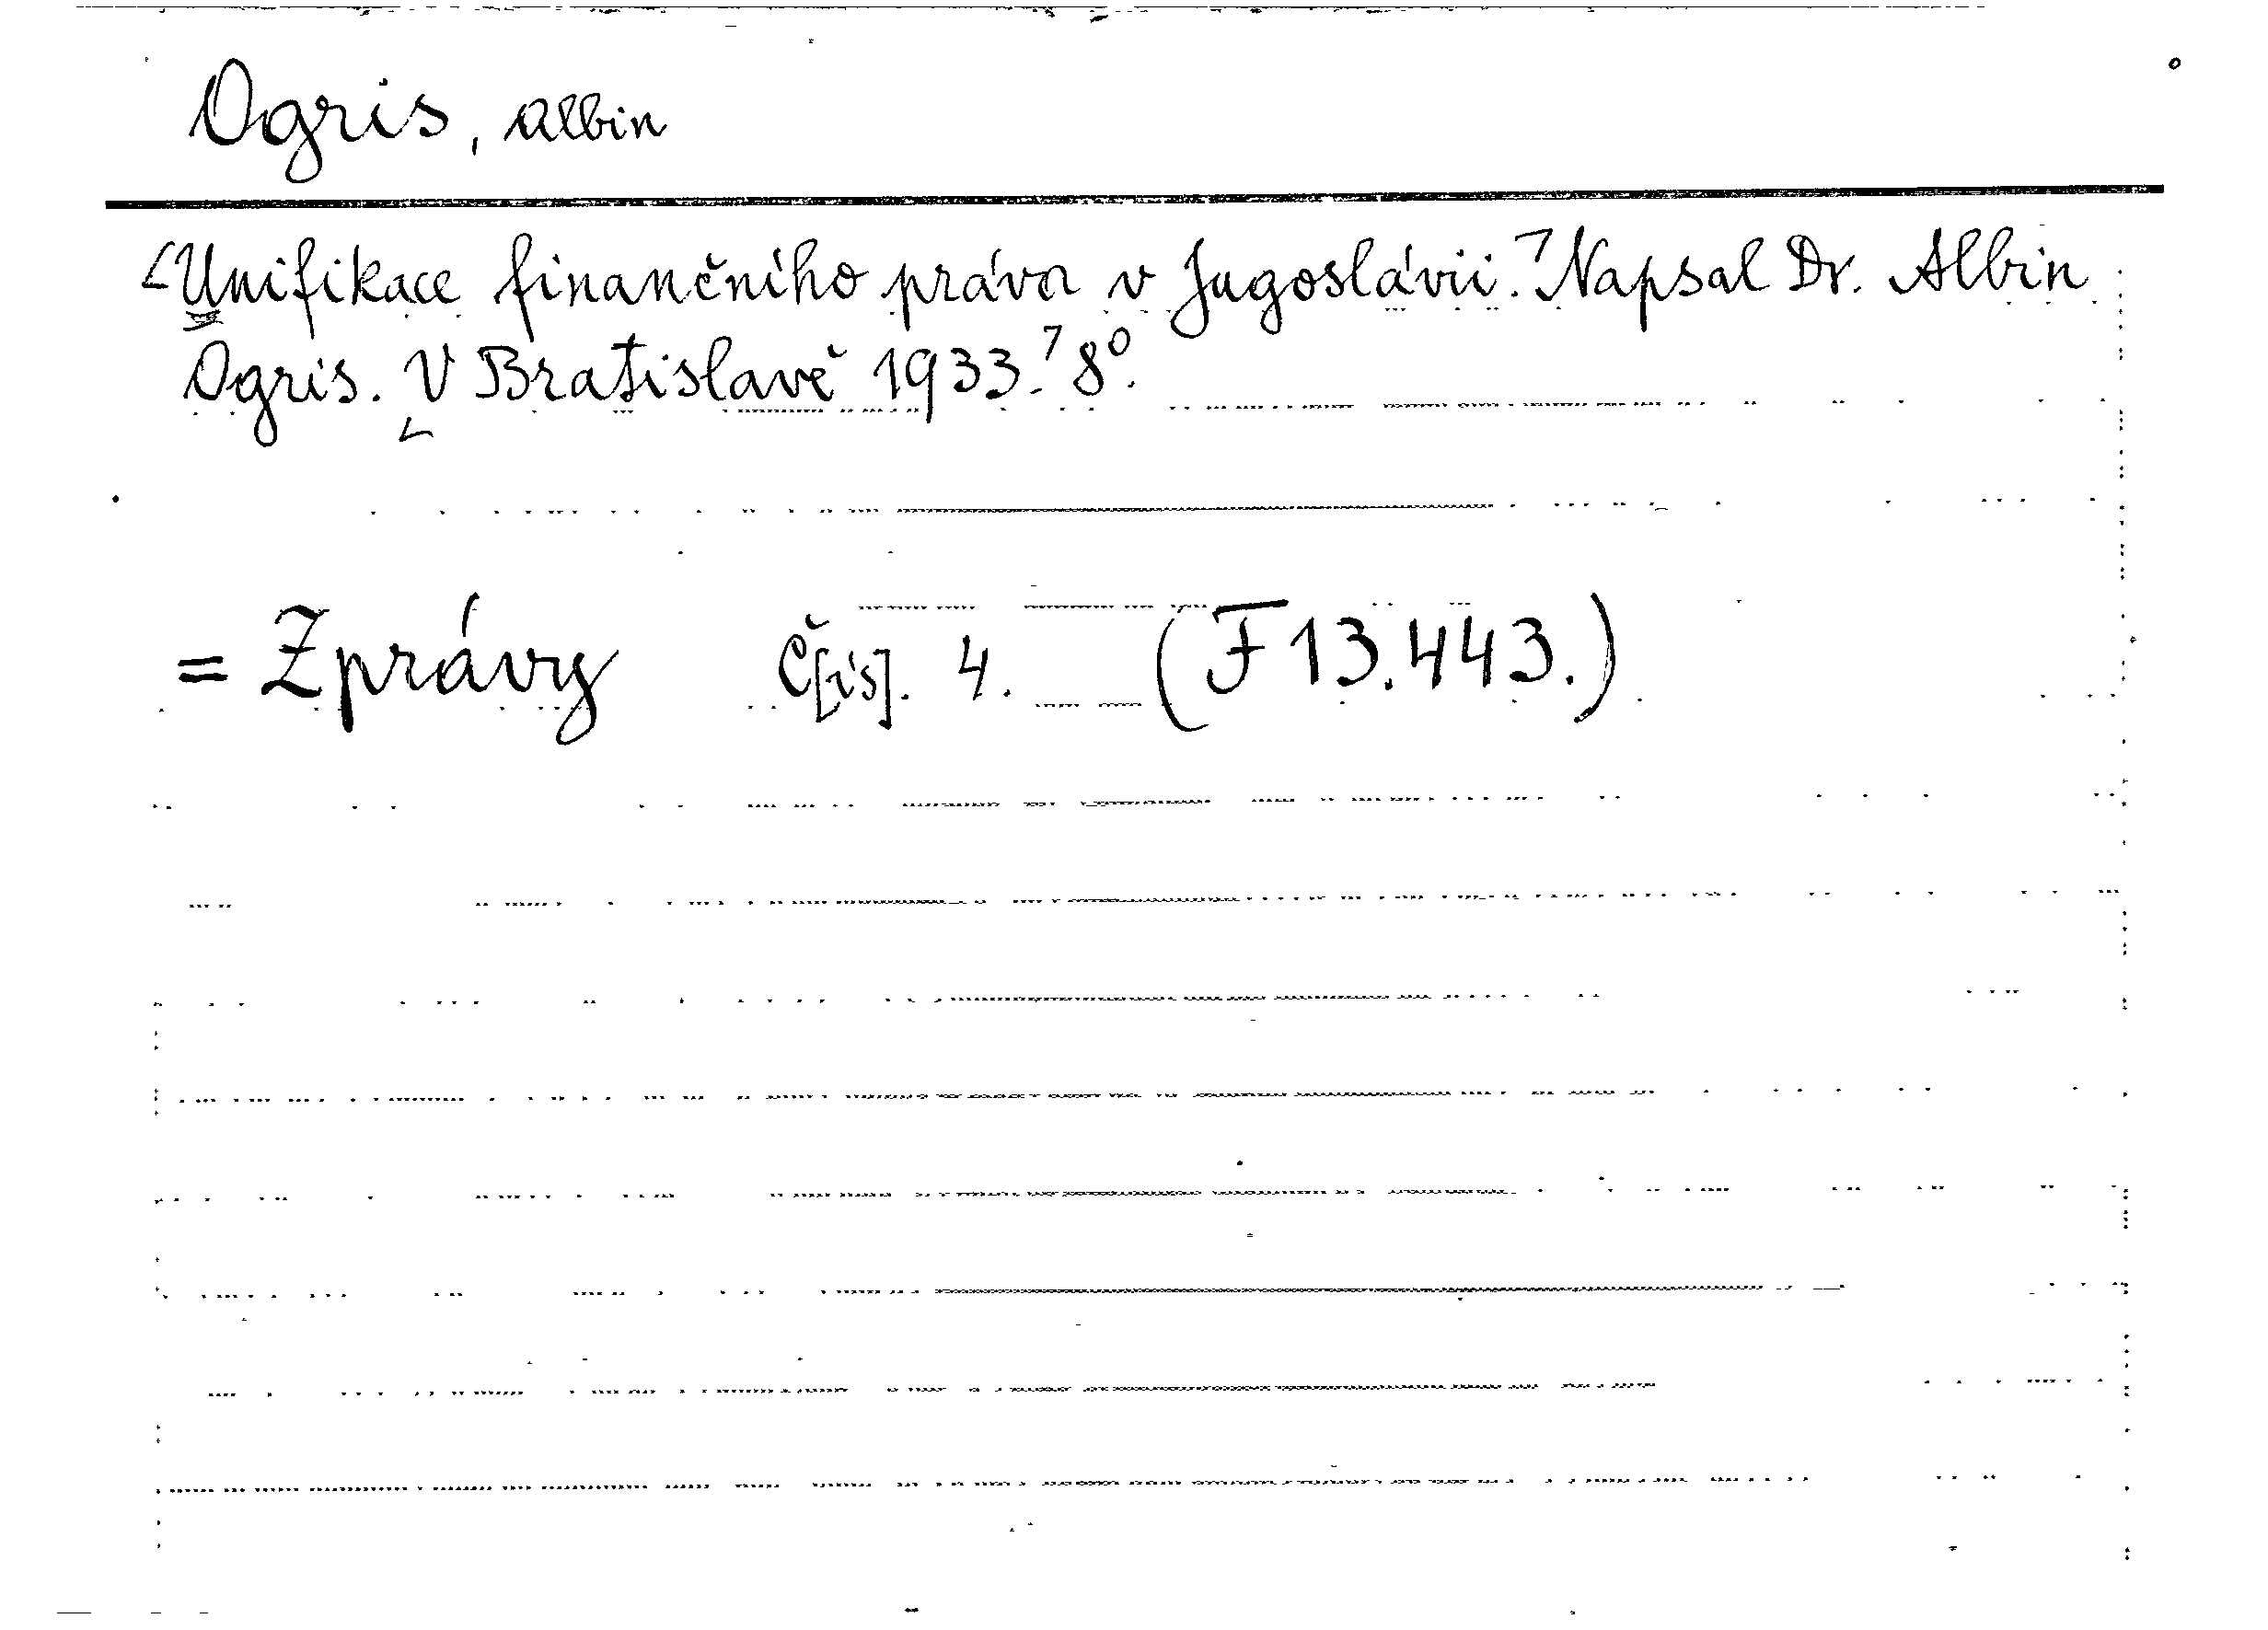 Ogris, Albin
Unifikace finančního práva v Jugoslávii. Napsal Dr. Albin
Ogris. V Bratislavě 1933. 8⁰.
= Zprávy Č[ís]. 4. (F 13.443.)